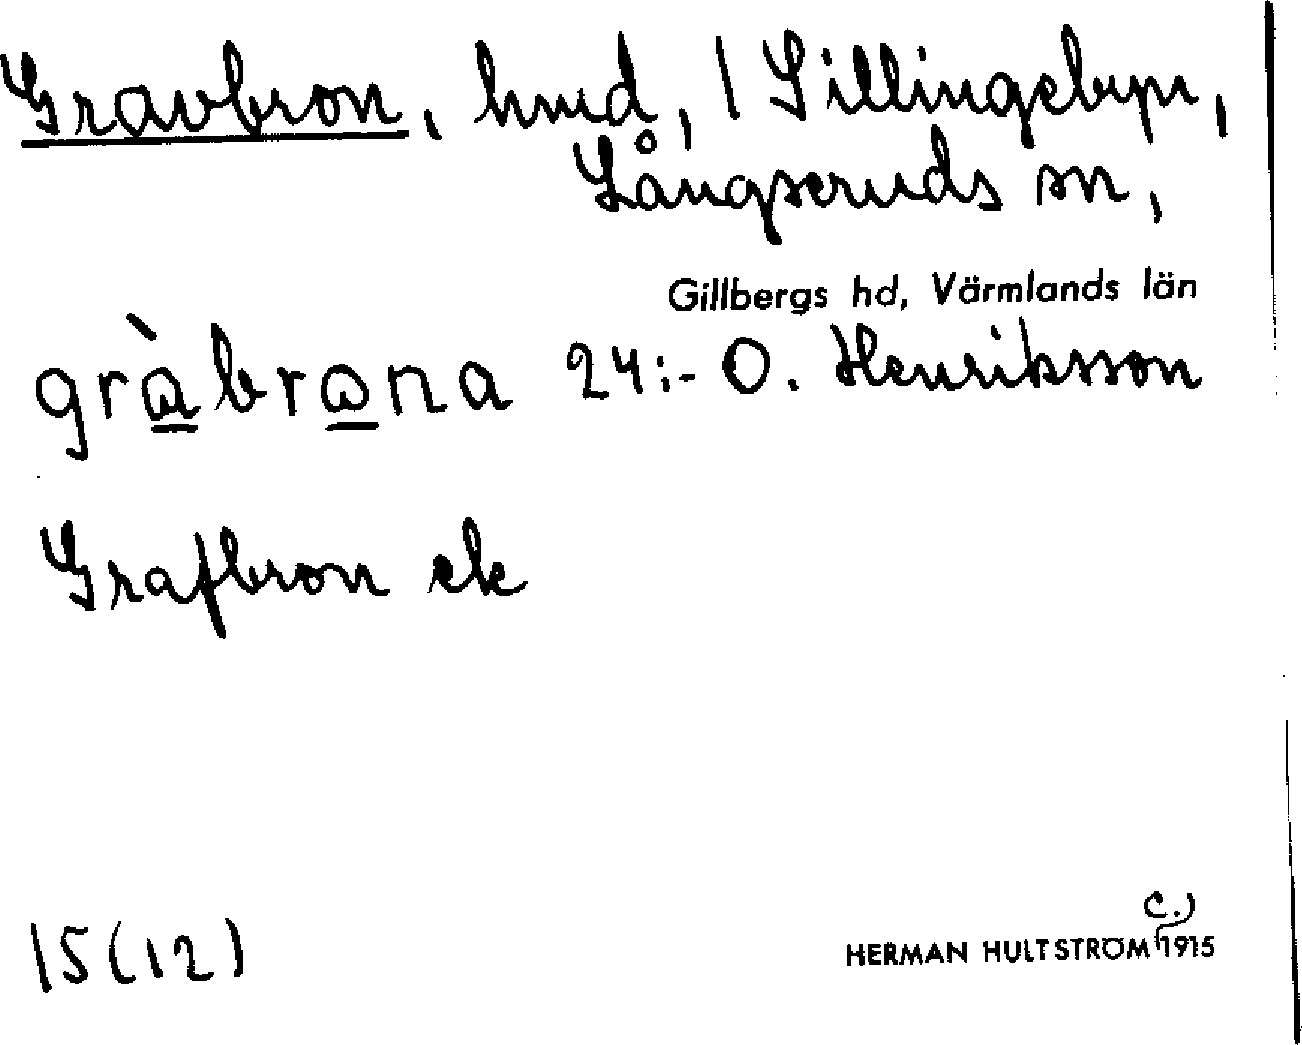 Gravbron, hmd, i Sillingebyn,
Långseruds sn,
Gillbergs hd, Värmlands län
gràbrona 24:- O. Henriksson
Grafbron ek
15(12)
c.)
HERMAN HULTSTRÖM 1915